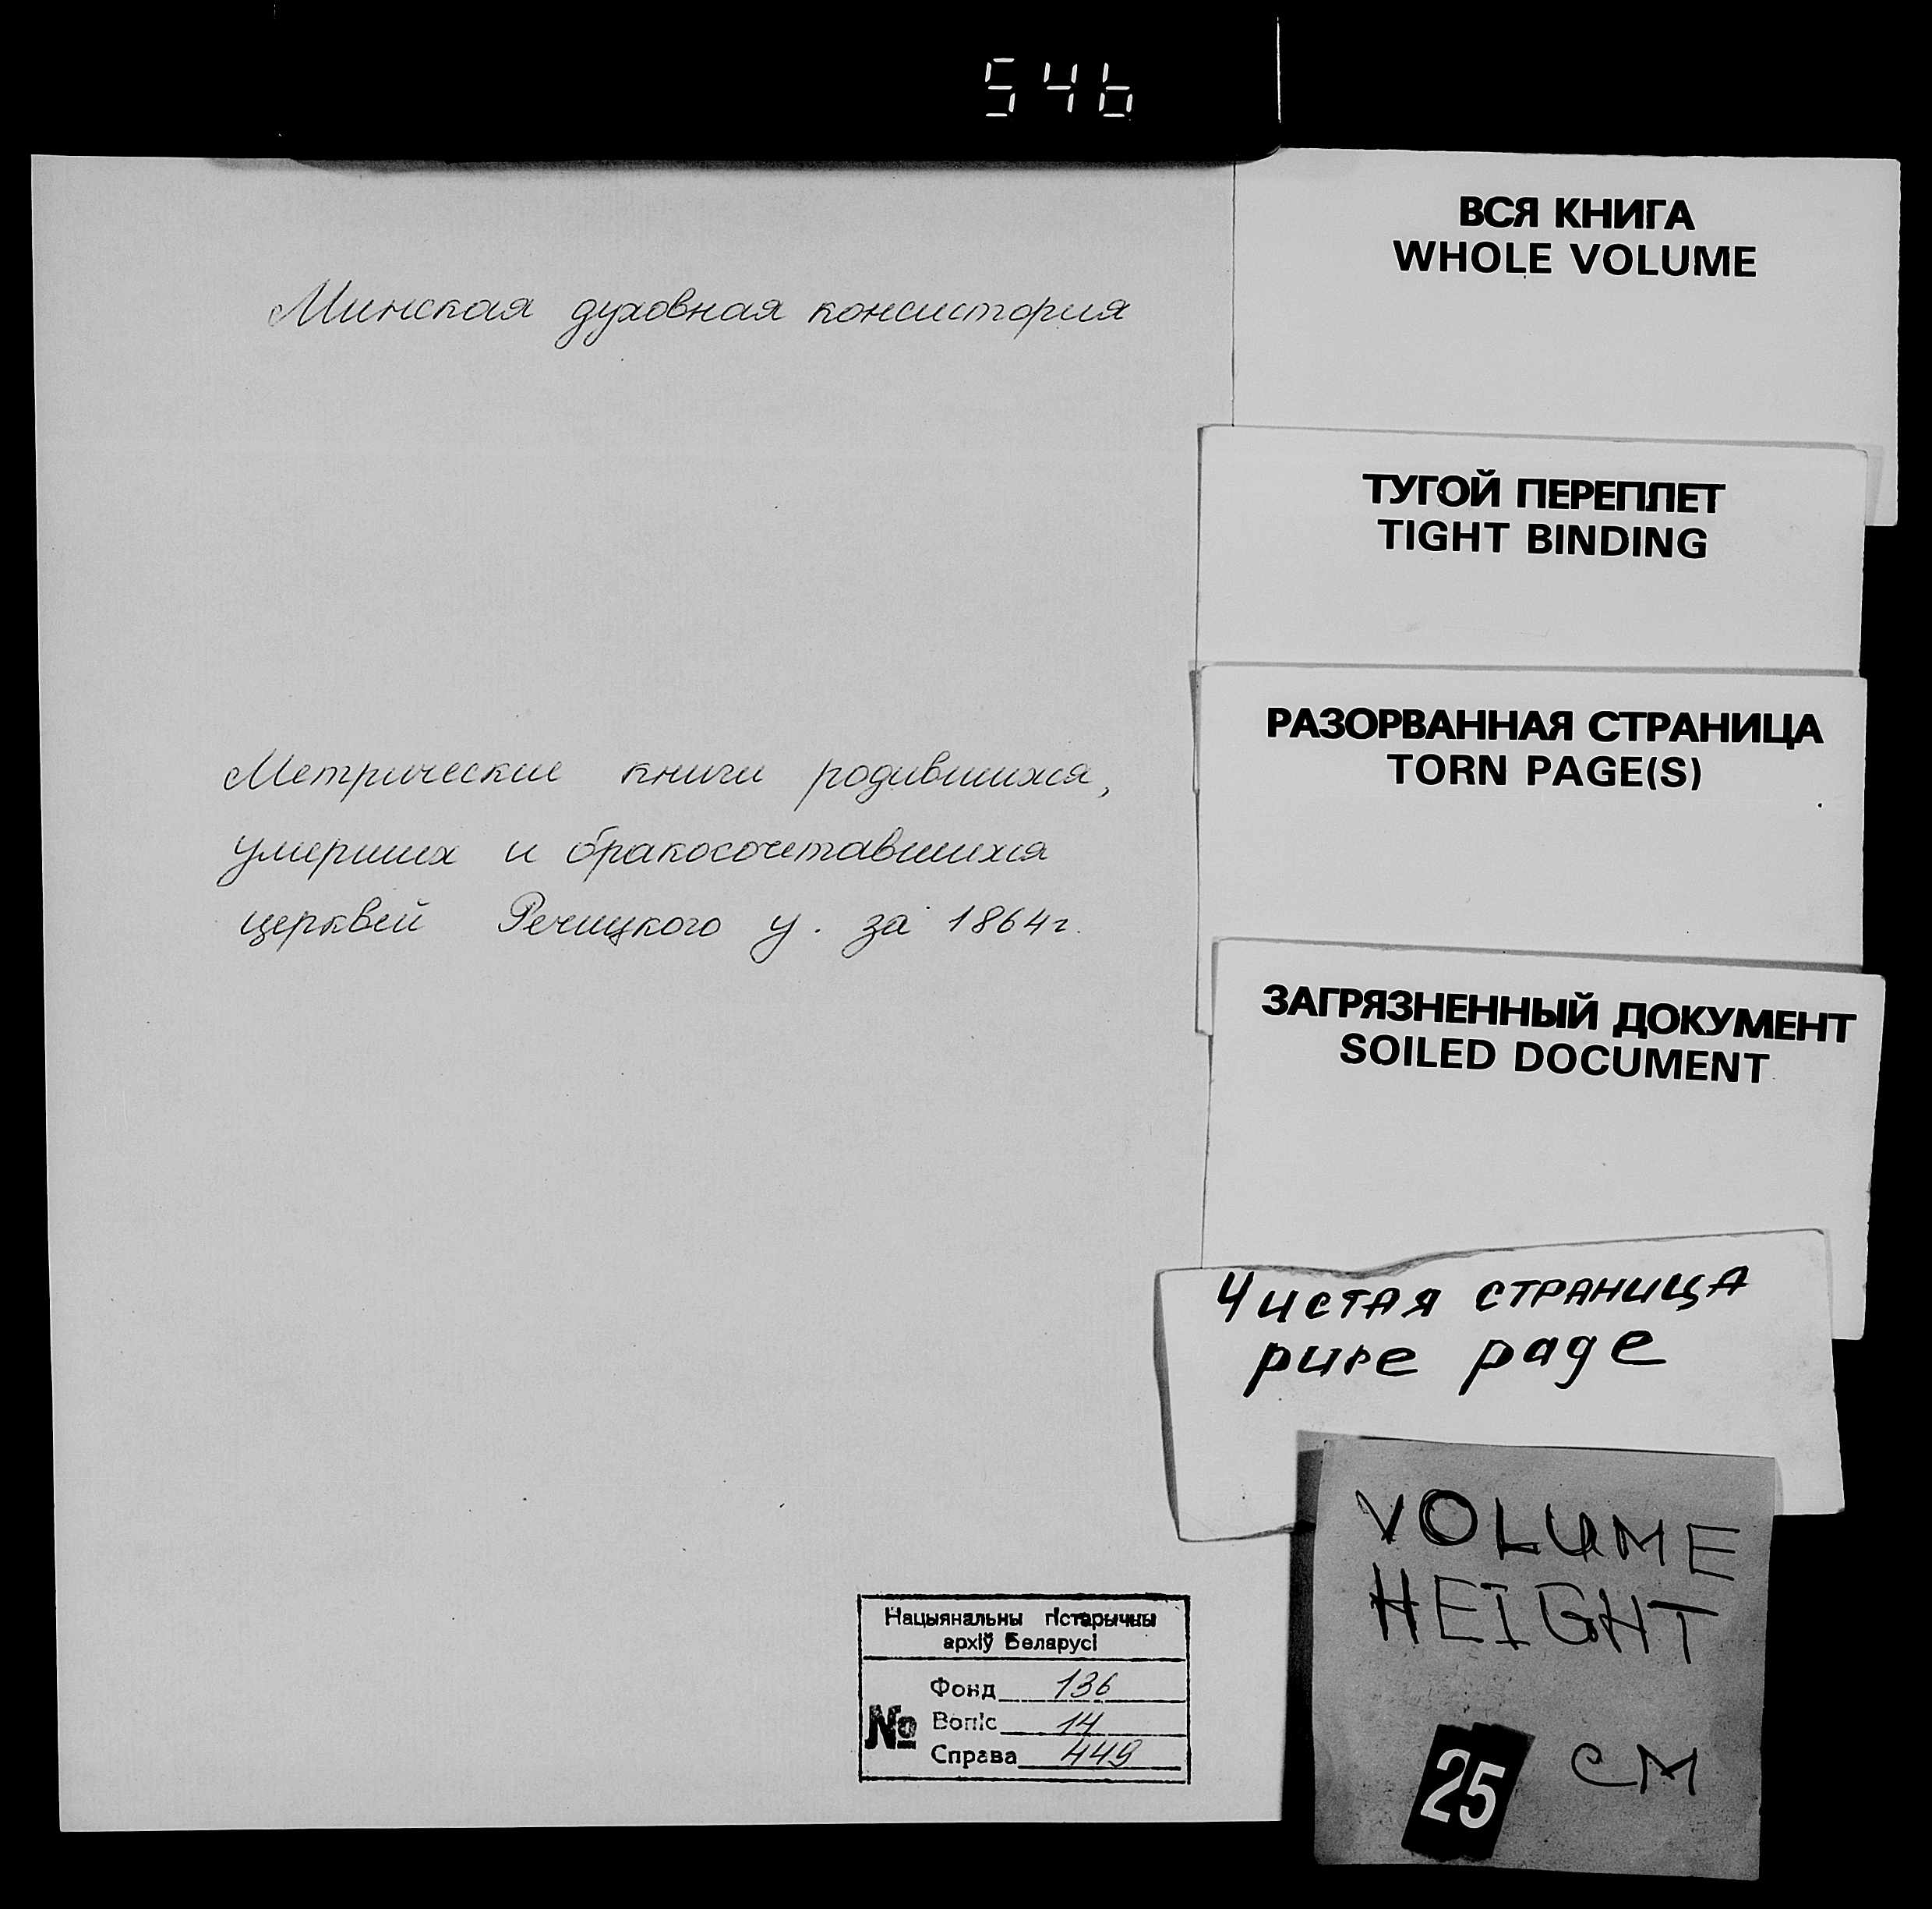 546
Минская духовная консистория
Метрические книги родившихся,
умерших и бракосочетавшихся
церквей Речицкого у. за 1864г.
Нацыянальны гістарычны
архіў Беларусі
№
Фонд 136
Вопіс 14
Справа 449
ВСЯ КНИГА
WHOLE VOLUME
ТУГОЙ ПЕРЕПЛЕТ
TIGHT BINDING
РАЗОРВАННАЯ СТРАНИЦА
TORN PAGE(S)
ЗАГРЯЗНЕННЫЙ ДОКУМЕНТ
SOILED DOCUMENT
Чистая страница
pure page
VOLUME
HEIGHT
25 см